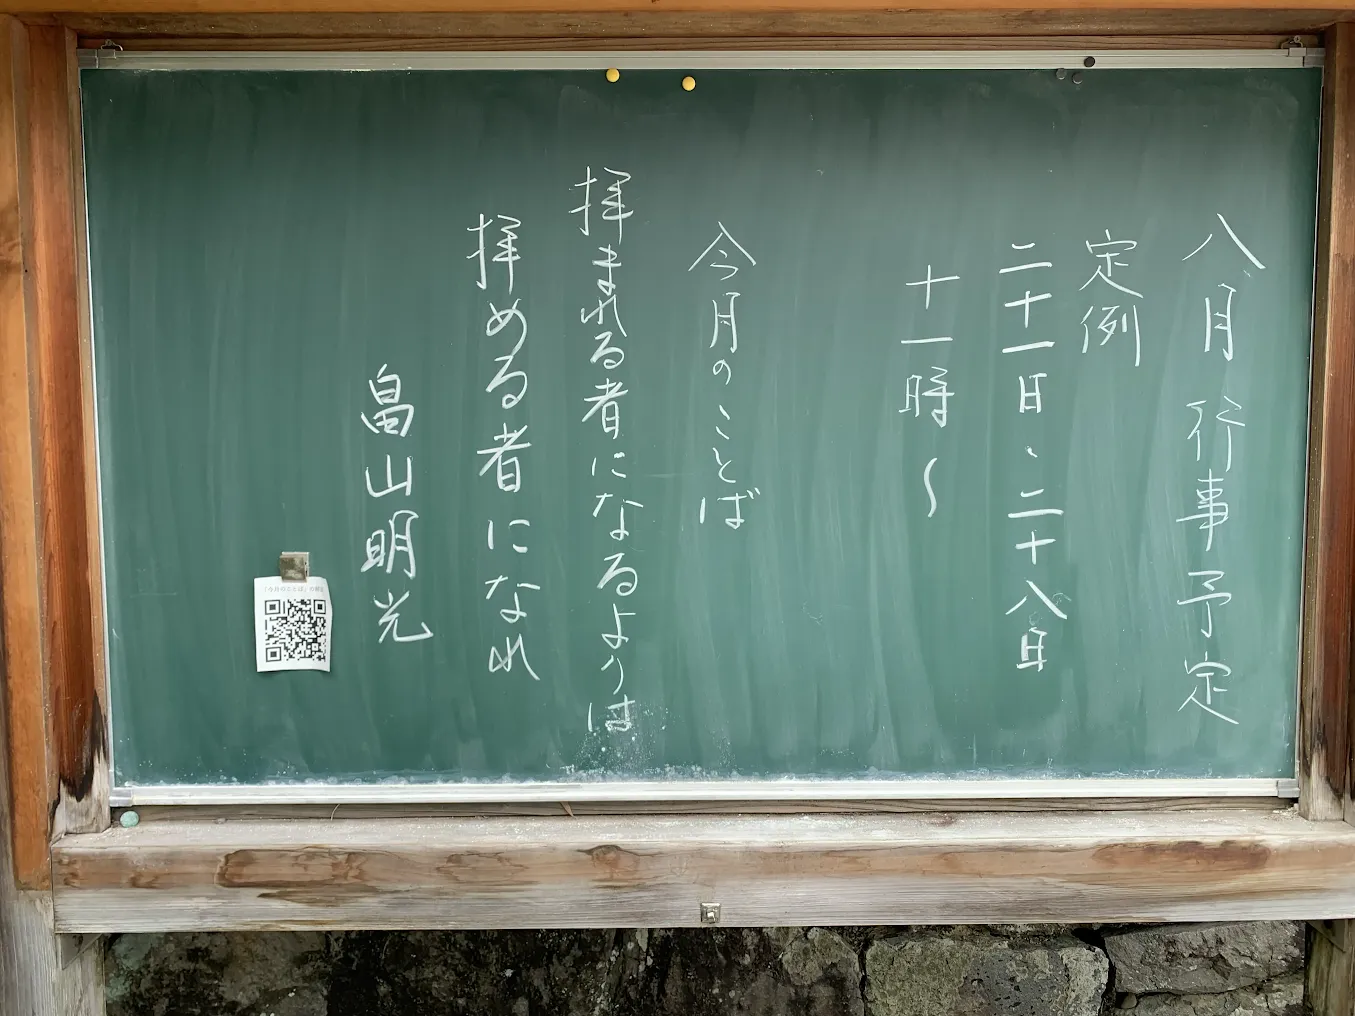 八月行事予定
定例
二十一日、二十八日
十一時〜
今月のことば
拝まれる者になるよりは
拝める者になれ
畠山明光
「今月のことば」の解説